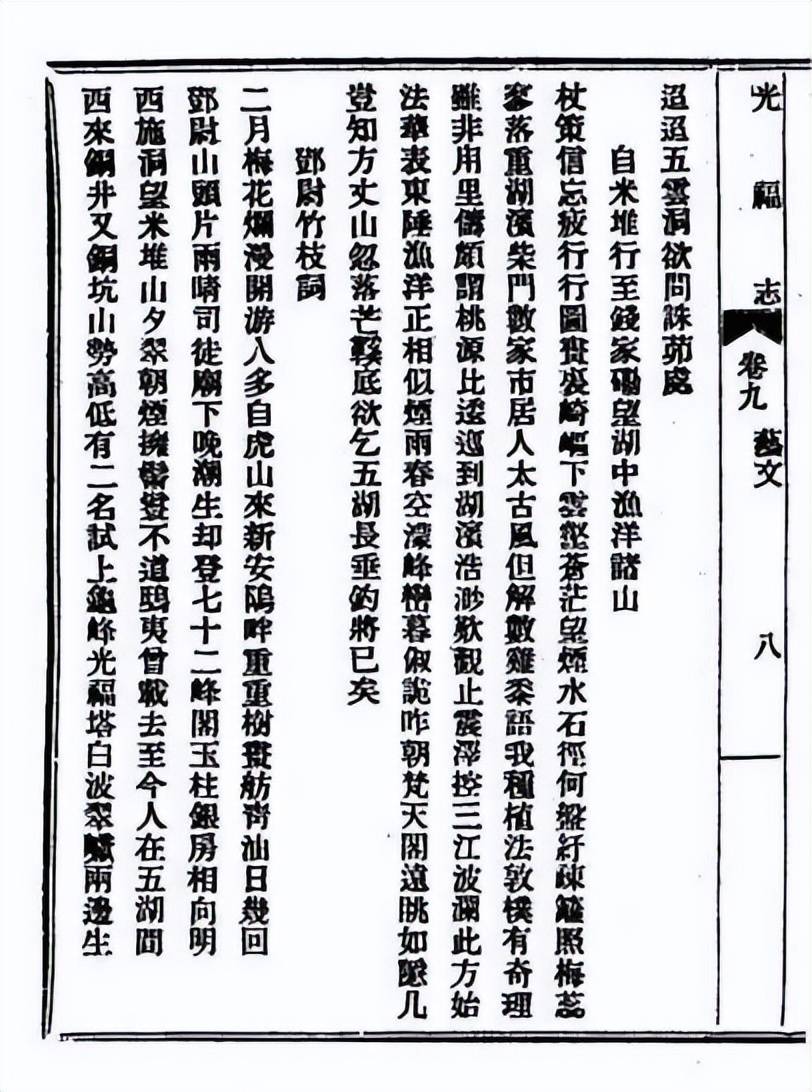 光福志 卷九 藝文 八
迢迢五雲洞欲問誅茆處
自米堆行至錢家磡望湖中漁洋諸山
杖策信忘疲行行圖賣裘崎嶇下雲壑蒼茫望煙水石徑何盤紆疎籬照梅蕊
村落重湖濱柴門數家市居人太古風但解數雞黍語我種植法敦樸有奇理
雖非用里儔頗謂桃源比逶迤到湖濱浩渺歎觀止震澤控三江波瀾此方始
法華表東陲漁洋正相似煙雨春空濛峰巒暮俶詭咋朝梵天閣遠眺如隱几
豈知方丈山忽落芒鞵底欲乞五湖長垂釣將已矣
鄧尉竹枝詞
二月梅花爛漫開游人多自虎山來新安隖畔重重樹畫舫靑山日幾回
鄧尉山頭片雨晴司徒廟下晚潮生却登七十二峰閣玉柱銀房相向明
西施洞望米堆山夕翠朝煙擁髻鬟不道鴟夷曾載去至今人在五湖間
西來銅井又銅坑山勢高低有二名試上龜峰光福塔白波翠巘兩邊生